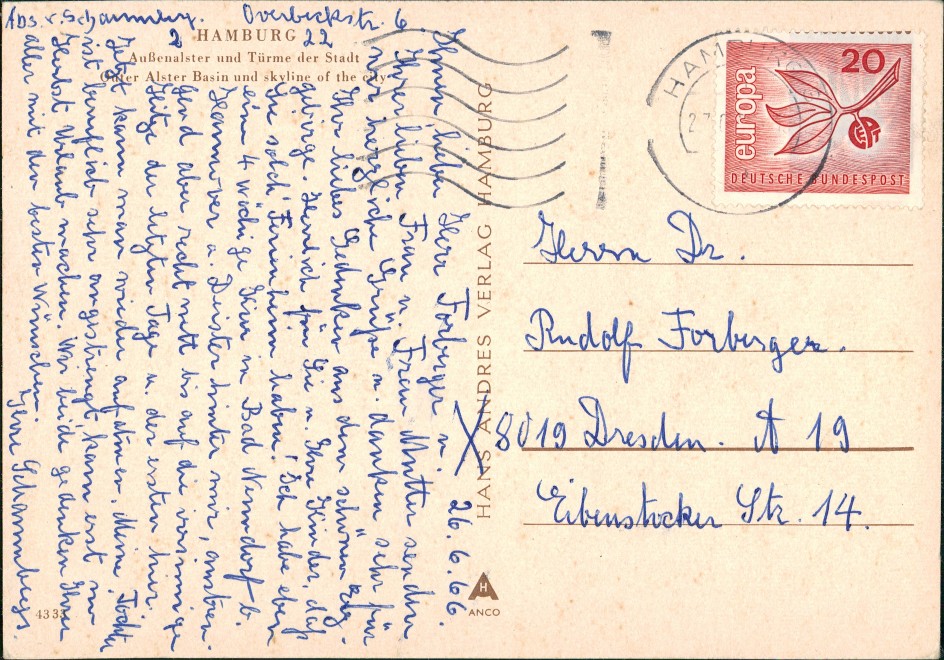 Abs. v. Schaumberg. Overbeckstr. 6
2 HAMBURG 22
Außenalster und Türme der Stadt
Outer Alster Basin and skyline of the city
26.6.66.
Ihnen lieber Herr Forberger u.
Ihrer lieben Frau u. Frau Mutter senden
wir herzliche Grüße u. danken sehr für
Ihr liebes Gedenken aus dem schönen
gebirge. Herrlich für Sie u. Ihre Kinder, daß
Sie solch Ferienheim haben! Ich habe eben
eine 4 wöchige Kur in Bad Nenndorf b.
Hannover a. Deister hinter mir, anstren-
gend aber recht nett bis auf die
Hitze der letzten Tage u. der ersten hier.
Jetzt kann man wieder aufatmen. Meine Tochter
ist beruflich sehr angestrengt, kann erst im
Herbst Urlaub machen. Wir beide gedenken Ihrer
aller mit den besten Wünschen.
Ihre Schaumbergs.
HANS ANDRES VERLAG HAMBURG
ANCO
H
4333
HAMBURG
europa
20
DEUTSCHE BUNDESPOST
Herrn Dr.
Rudolf Forberger.
X 8019 Dresden. A 19
Eibenstocker Str. 14.